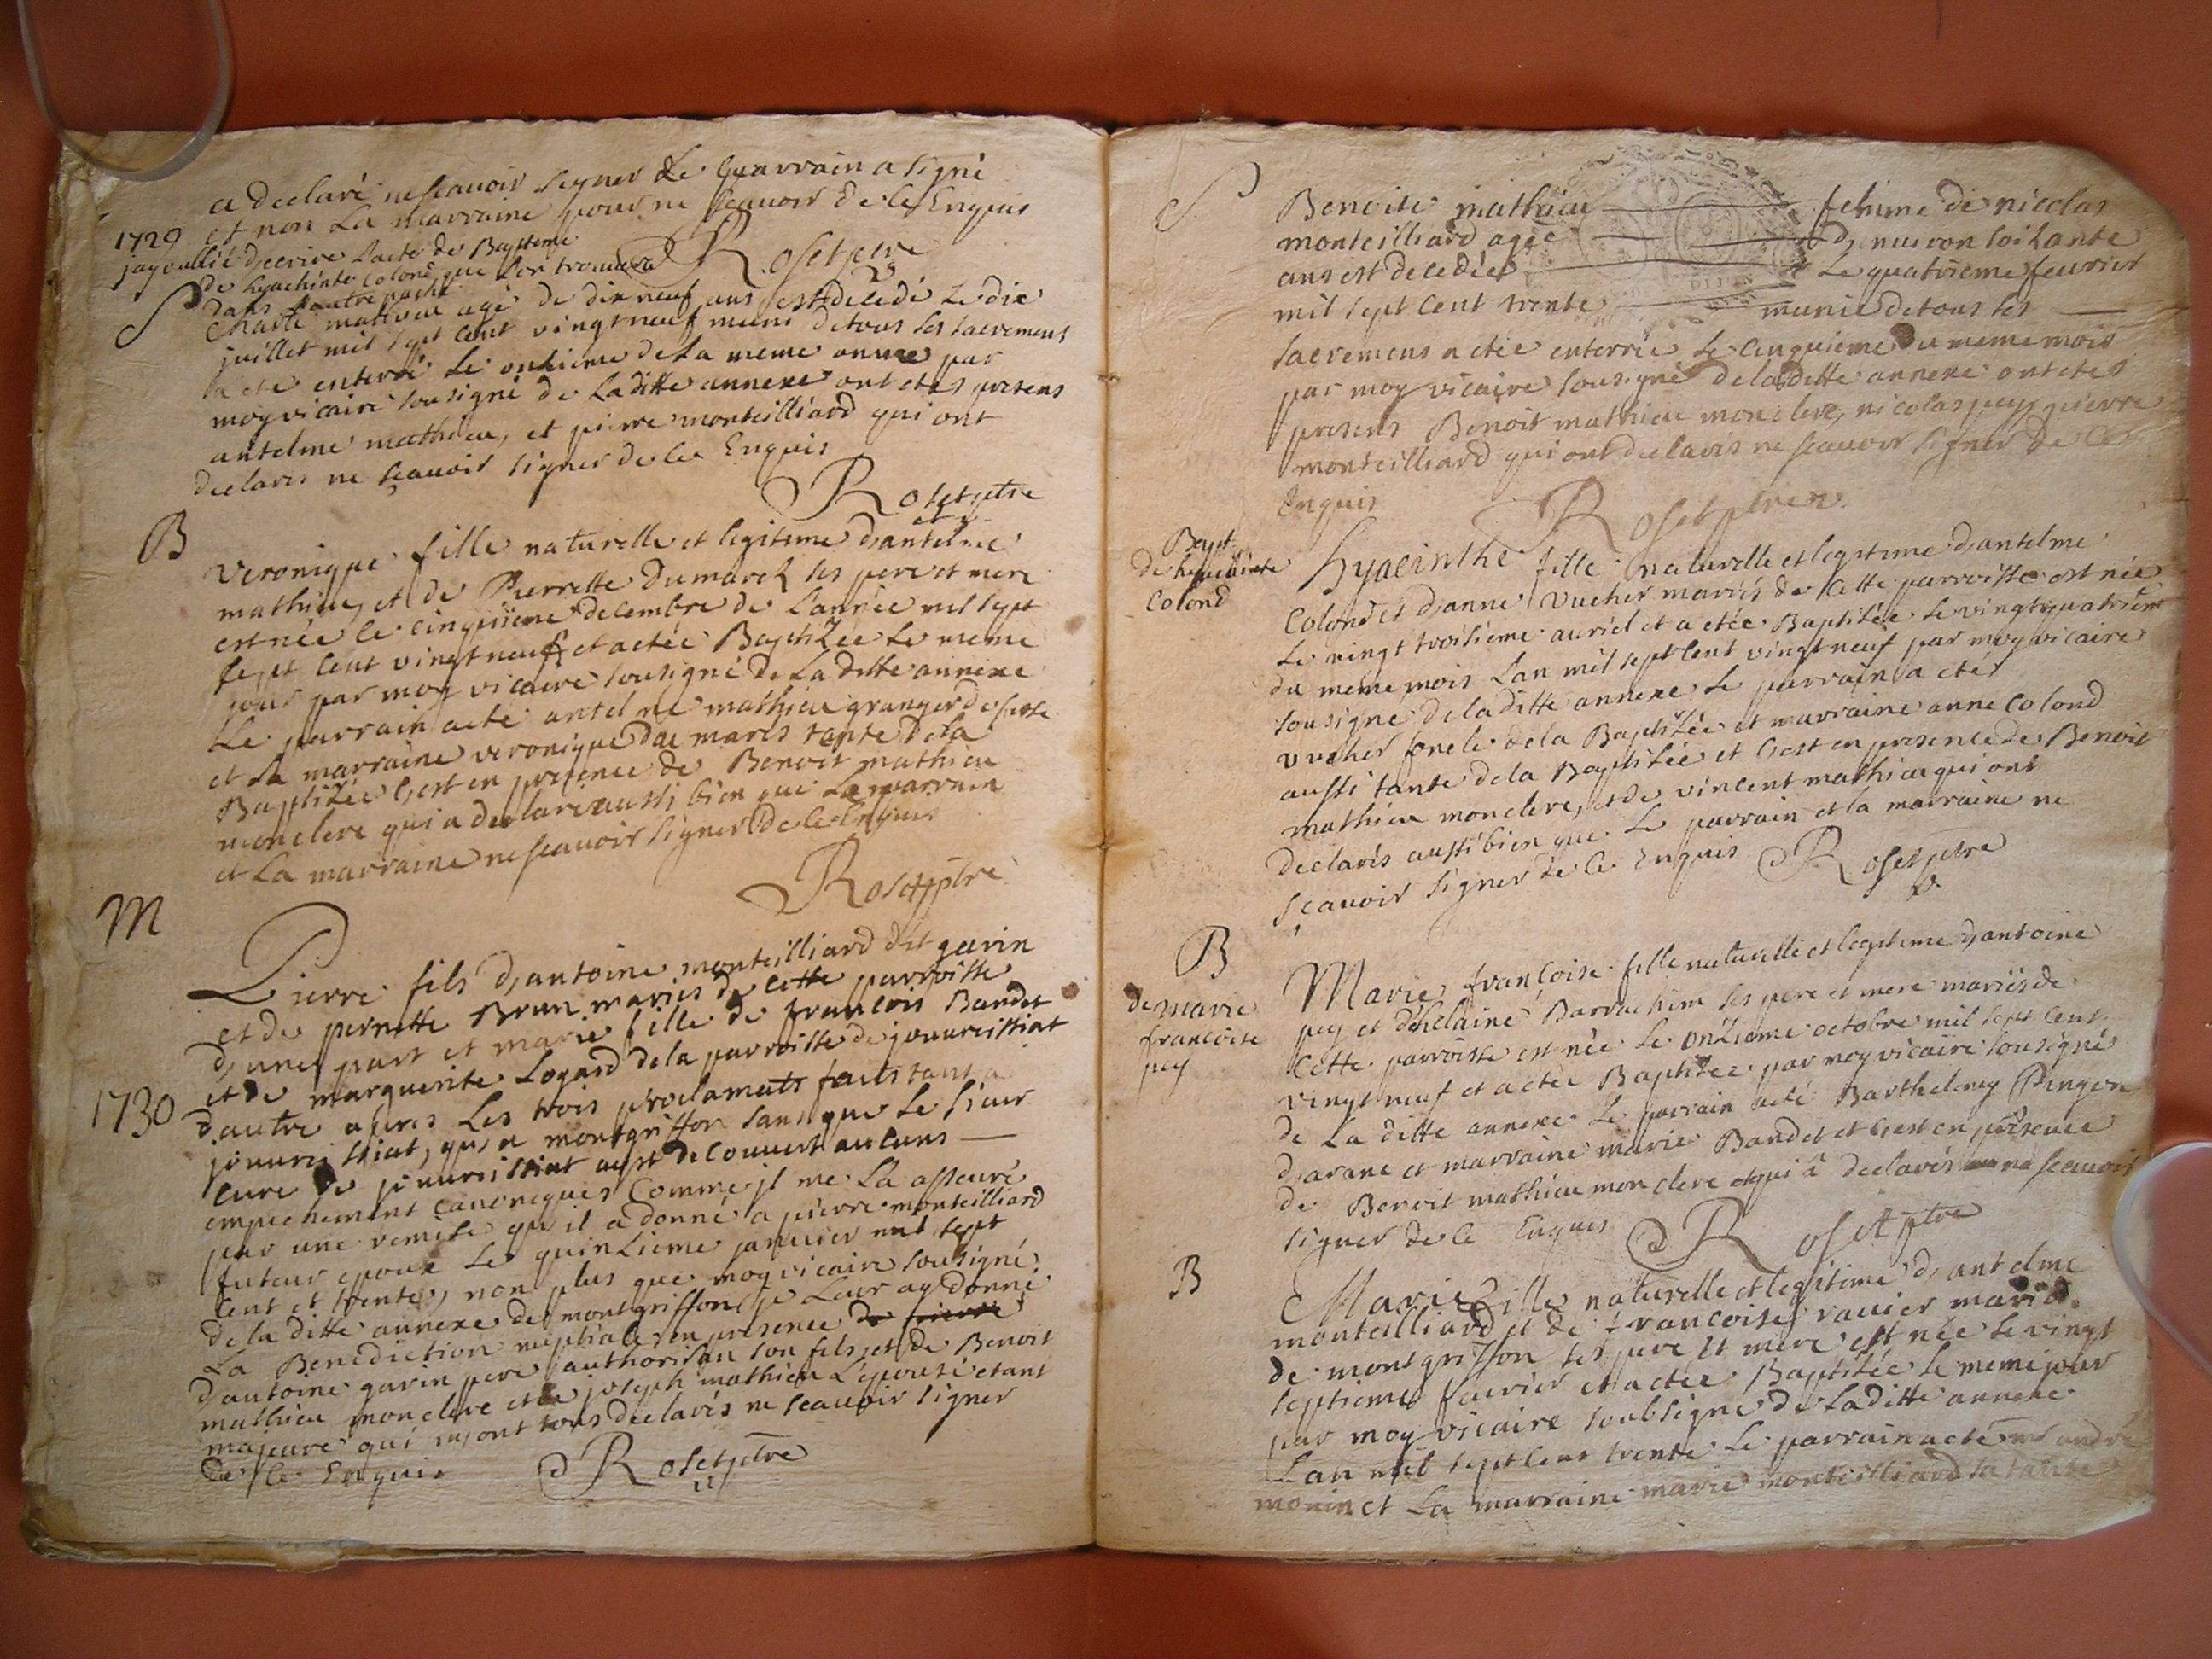 a declaré ne scauoir signer Le parrain a signé
et non La marraine pour ne scauoir de ce Enquis
1729
jay oublié d'ecrire Lacte de Bapteme
de hyachinte Colond que Lon trouuera
dans Lautre page
Rosetptre
S
mathieu agé de dix neuf ans est decedé Le dix
juillet mil sept cent vingt neuf muni de tous les sacremens
a eté enterré Le onzieme de La meme année par
moy vicaire sousigné de Laditte annexe ont etes presens
antelme mathieu, et pierre monteilliard qui ont
declarés ne sçauoir signer de ce Enquis
Rosetptre
B
Veronique fille naturelle et legitime d'antelme
mathieu, et de Pierrette Dumarch ses pere et mere
est née le cinquieme decembre de L'année mil sept
sept cent vingt neuf et a etée Baptizée Le meme
jour par moy vicaire sousigné de La ditte annexe
Le parrain a eté antelme mathieu granger de
et La marraine veronique du mares tante de la
Baptizée c'est en presence de Benoit mathieu
monclere qui a declaré aussi bien que Le parrain
et La marraine ne scauoir signer de ce Enquis
Rosetptre
M
Pierre fils d'antoine monteilliard dit gavin
et de pernette Brun mariés de cette parroisse
d'une part et marie fille de francois Bandet
et de marguerite Logard de la parroisse de jouurissiat
1730
d'autre apres Les trois proclamats faits tant a
jouurissiat, qu'a montgriffon sans que Le sieur
cure de jouurissiat ayt decouvert aucuns
empechement canoniques comme jl me La asseuré
par une remise qu'il a donné a pierre monteilliard
futeur epoux Le quinzieme januier mil sept
cent et trente, non plus que moy vicaire sousigné
de la ditte annexe de montgriffon je Leur ay donné
La Benediction nuptiale en presence de pierre
d'antoine gavin pere authorisan son fils, et de Benoit
mathieu monclere et de joseph mathieu L'epouse etant
majeure qui m'ont tous declarés ne scauoir signer
de ce Enquis
Rosetptre
S
Benoite mathieu femme de nicolas
monteilliard agée d'enuiron soixante
ans est decedée Le quatrieme feurier
mil sept cent trente munie de tous les
sacremens a etée enterrée Le cinquieme du meme mois
par moy vicaire sousigné de la ditte annexe ont etes
presens Benoit mathieu monclere, nicolas pey, pierre
monteilliard qui ont declarés ne scauoir signer de ce
Enquis
Rosetptre
Bapt
de hyacinte
Colond
hyacinthe fille naturelle et legitime d'antelme
Colond et d'anne Vucher mariés de cette parroisse est née
Le vingt troisieme auriel et a etée Baptisée Le vingt quatrieme
du meme mois Lan mil sept cent vingt neuf par moy vicaire
sousigné de la ditte annexe Le parrain a etés
vucher foncle de la Baptizée et marraine anne Colond
aussi tante de la Baptisée et c'est en presence de Benoit
mathieu monclere, et de vincent mathieu qui ont
declarés aussi bien que Le parrain et la marraine ne
scauoir signer de ce Enquis
Rosetptre
B
de marie
francoise
pey
Marie francoise fille naturelle et legitime d'antoine
pey et d'helaine ses pere et mere mariés de
cette parroisse est née Le onzieme octobre mil sept cent
vingt neuf et a etée Baptisée par moy vicaire sousigné
de La ditte annexe Le parrain a eté Barthelemy Pingon
d'arane et marraine marie Bandet et c'est en presence
de Benoit mathieu monclere et qui a declarés ne scauoir
signer de ce Enquis
Rosetptre
B
Marie fille naturelle et legitime d'antelme
monteilliard et de francoise ravier mariés
de montgriffon ses pere et mere est née Le vingt
septieme feurier et a etée Baptisée le meme jour
par moy vicaire soubsigné de Laditte annexe
Lan mil sept cent trente Le parrain a eté andré
monin et La marraine marie monteilliard sa tante